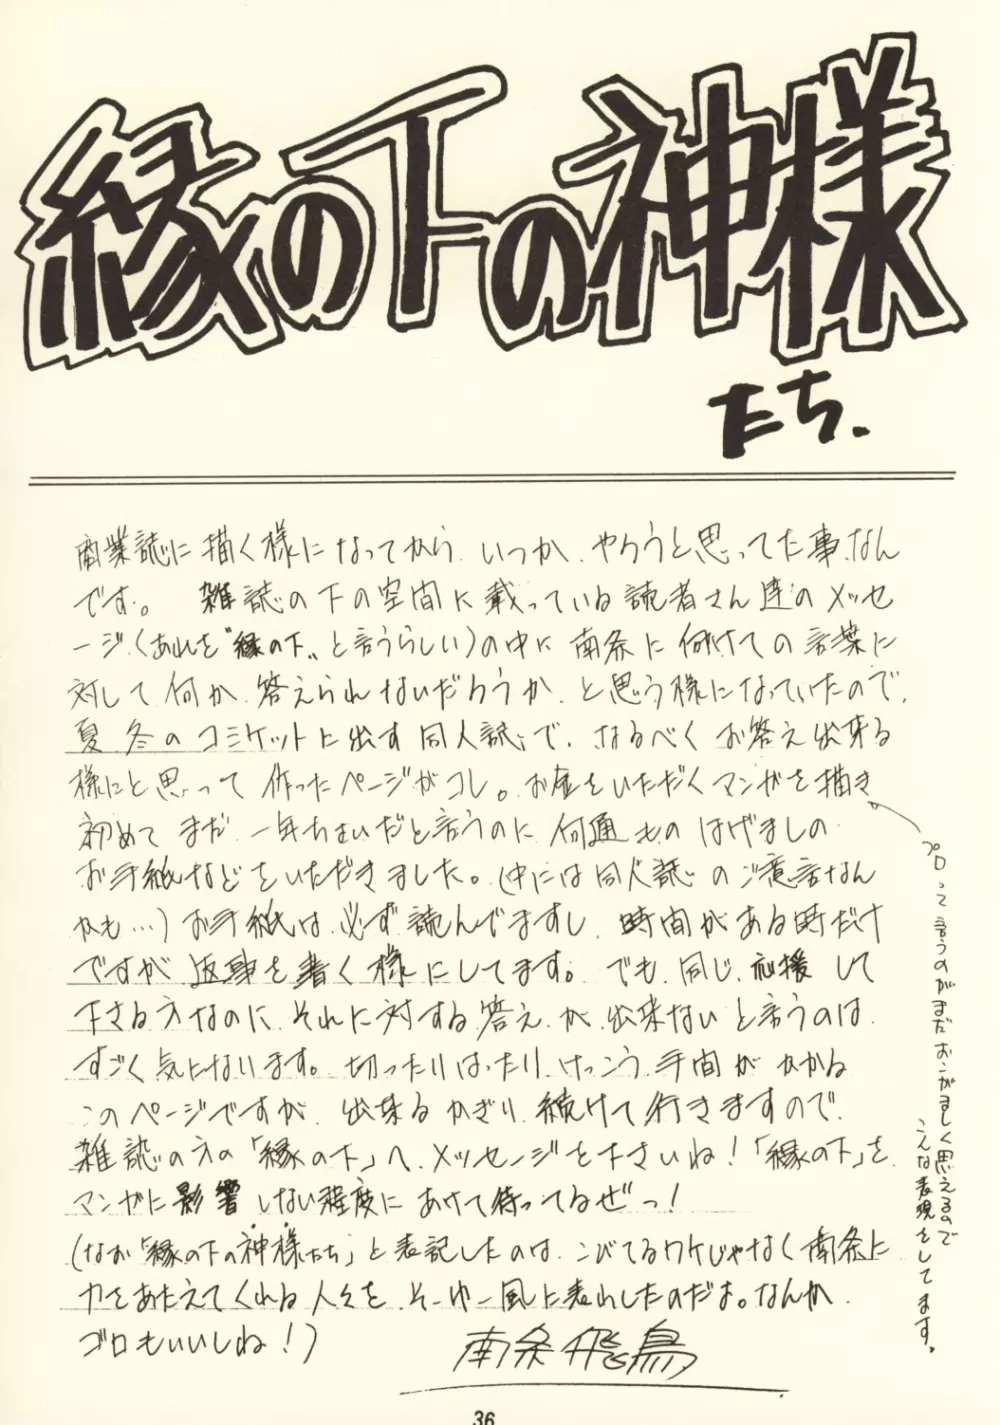 縁の下の神様
たち.
商業誌に描く様になってから、いつか、やろうと思ってた事なん
です。 雑誌の下の空間に載っている読者さん達のメッセ
ージ(あれを〝縁の下〟と言うらしい)の中に南条に向けての言葉に
対して何か、答えられないだろうか、と思う様になっていたので、
夏冬のコミケットに出す同人誌で、なるべくお答え出来る
様にと思って作ったページがコレ。お金をいただくマンガを描き
初めてまだ、一年ちょいだと言うのに何通ものはげましの
お手紙などをいただきました。(中には同人誌のご意話なん
かも…)お手紙は、必ず読んでますし、時間がある時だけ
ですが、返事を書く様にしてます。でも、同じ、応援して
下さる方なのに、それに対する答えが、出来ないと言うのは、
すごく気になります。切ったりはったり、けっこう、手間がかかる
このページですが、出来るかぎり、続けて行きますので、
雑誌の方の「縁の下」へ、メッセージを下さいね!「縁の下」を、
マンガに影響しない程度にあけて待ってるぜっ!
(なお「縁の下の神様たち」と表記したのは、こびてるワケじゃなく南条に
力をあたえてくれる人々を、そーゆー風に表わしたのだよ。なんか、
ゴロもいいしね!)
南条飛鳥
プロって言うのがまだおこがましく思えるので
こんな表現をしてます。
36